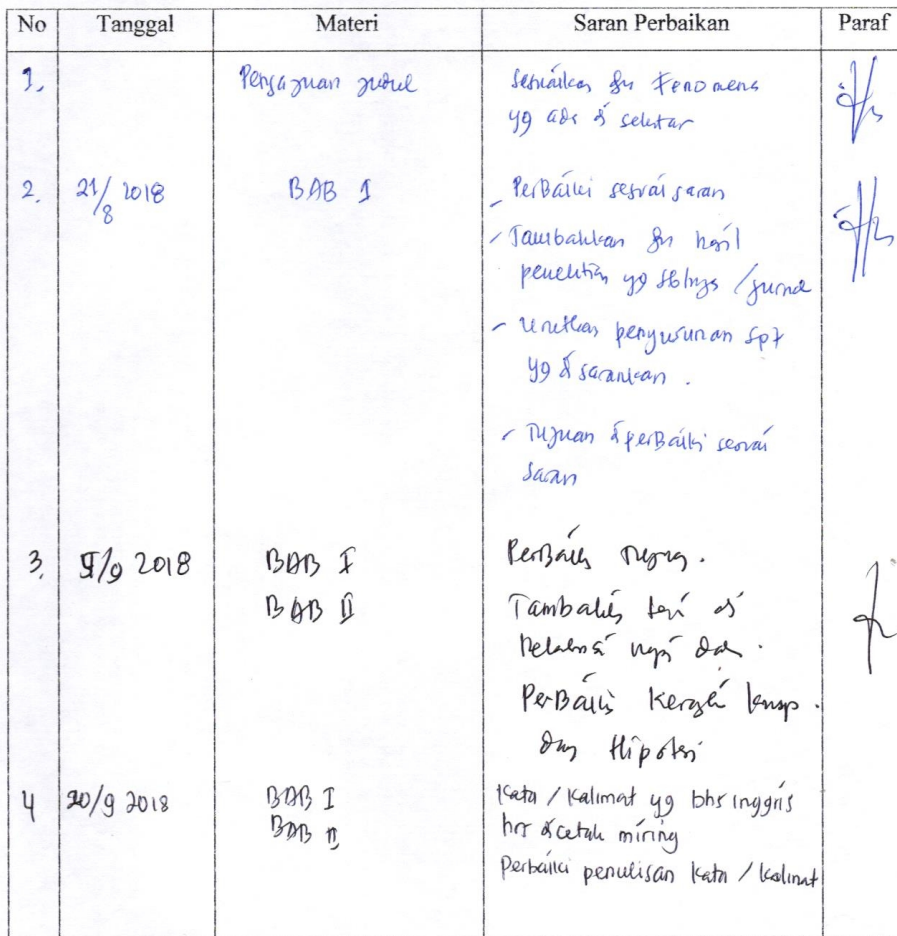 No Tanggal Materi Saran Perbaikan Paraf
1. Pengajuan judul sesuaikan dn Fenomena
yg ada d sekitar
2. 21/8 2018 BAB I - Perbaiki sesuai saran
- Tambahkan dn hasil
penelitian yg sblnya / jurnal
- Urutkan penyusunan spt
yg d sarankan.
- Tujuan d perbaiki sesuai
saran
3. /9 2018 BAB I Perbaiki
BAB II Tambah
Perbaiki
Hipotesi
4 20/9 2018 BAB I Kata / Kalimat yg bhs inggris
BAB II hrs dcetak miring
Perbaiki penulisan kata / kalimat